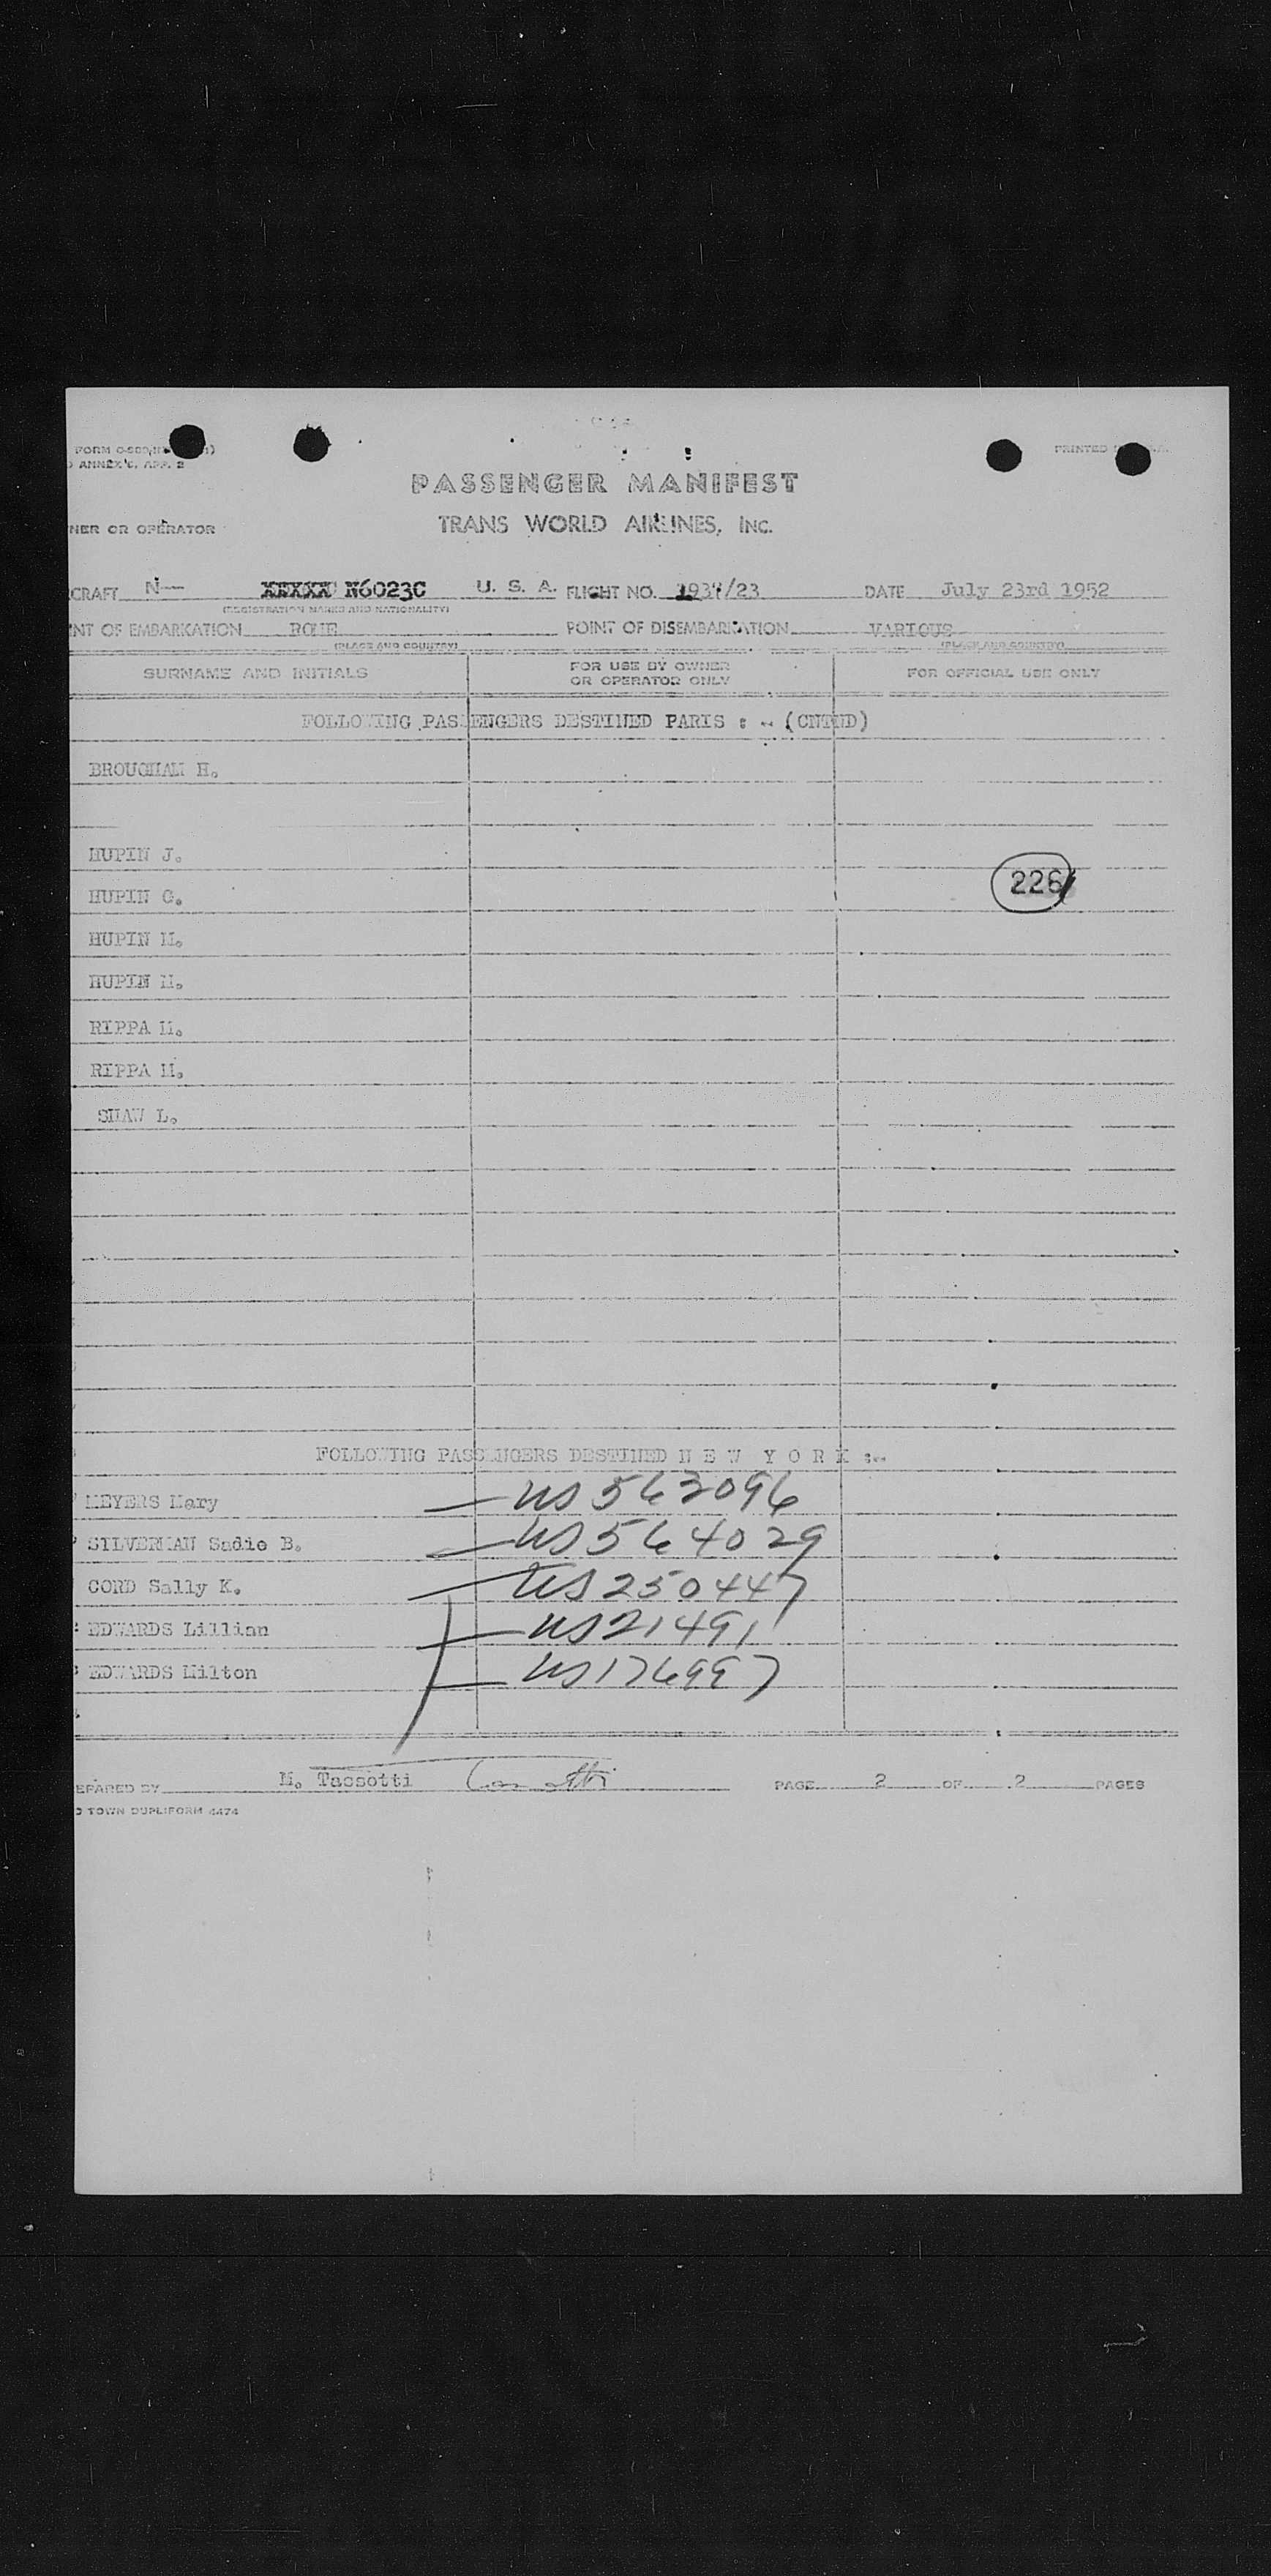 FORM
ANNEX 6, APP. 2
PRINTED
PASSENGER MANIFEST
NER OR OPERATOR TRANS WORLD AIRLINES, INC.
CRAFT N— N6023C U. S. A. FLIGHT NO. /23 DATE July 23rd 1952
(REGISTRATION MARKS AND NATIONALITY)
NT OF EMBARKATION ROME POINT OF DISEMBARKATION VARIOUS
(PLACE AND COUNTRY) (PLACE AND COUNTRY)
SURNAME AND INITIALS FOR USE BY OWNER OR OPERATOR ONLY FOR OFFICIAL USE ONLY
FOLLOWING PASSENGERS DESTINED PARIS : - (CNTND)
BROUGHAM H.
HUPIN J.
226
HUPIN G.
HUPIN M.
HUPIN M.
RIPPA M.
RIPPA M.
SHAW L.
FOLLOWING PASSENGERS DESTINED N E W Y O R K :-
MEYERS Mary — US 563096
SILVERMAN Sadie B. — US 564029
CORD Sally K. — US 250447
EDWARDS Lillian — US 21491
EDWARDS Milton — US 176997
EPARED BY M. Tassotti PAGE 2 OF 2 PAGES
TOWN DUPLIFORM 4474